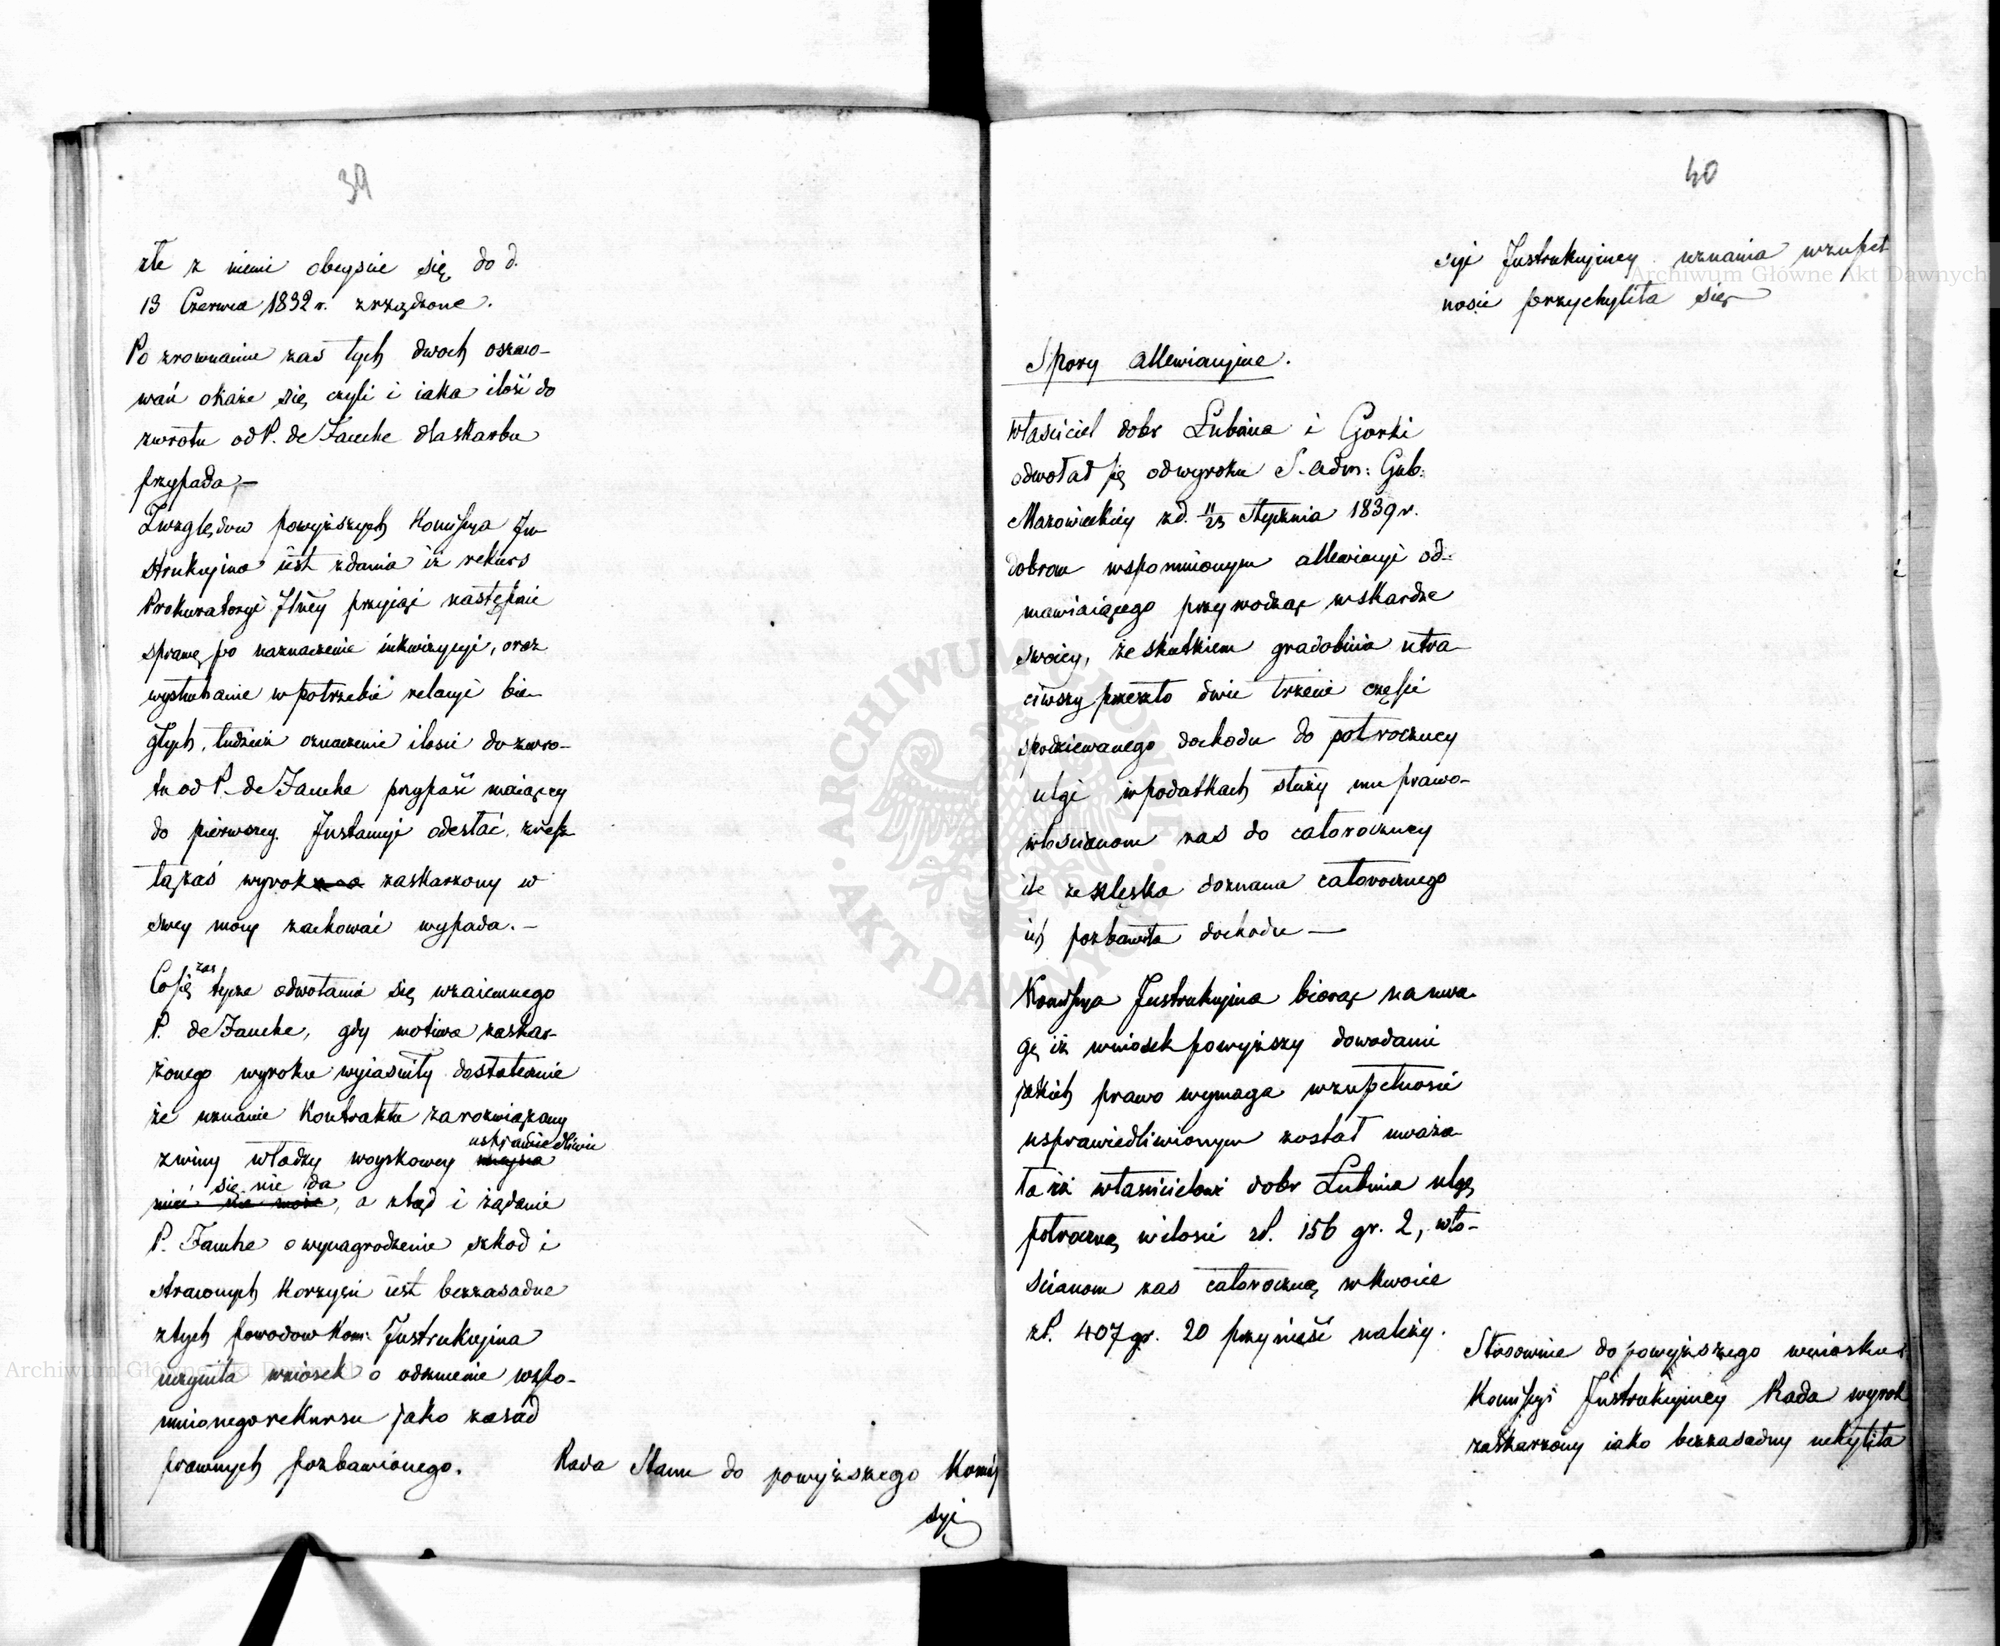 39
złe z niemi obeyście się do d.
13 Czerwca 1832 r. zrządzone.
Po zrownaniu zaś tych dwoch oszaco-
wań okaże się, czyli i iaka ilość do
zwrotu od P. de Fauche dla skarbu
przypada,—
Zwzględow powyższych Kommissya In
strukcyjna iest zdania iż rekurs
Prokuratoryi przyjąć następnie
sprawę po naznaczenie inkwizycyi, oraz
wysłuchanie w potrzebie relacyi bie-
głych, tudzież oznaczenie ilości do zwro-
tu od P. de Fauche przypaść maiącey
do pierwszey Instancyi odesłać, zresz
tą zaś wyrok zaskarżony w
swey mocy zachować wypada.—
Co się zas tycze odwołania się wzaiemnego
P. de Fauche, gdy motiwa zaskar-
żonego wyroku wyiaśniły dostatecznie
że uznanie Kontraktu za rozwiązany
z winy władzy woyskowey usprawiedliwić
się nie da, a ztąd i żądanie
P. Fauche o wynagrodzenie szkod i
straconych korzyści iest bezzasadne
z tych powodow Kom: Instrukcyjna
uczyniła wniosek o odrzucenie wspo-
mnionego rekursu jako zasad
prawnych pozbawionego.
Rada Stanu do powyższego Komis
syi
40
syi Instrukcyjney uznania wzupeł
ności przychyliła się
Spory allewiacyjne.
Właściciel dobr Lubina i Gorki
odwołał się od wyroku S. adm: Gub:
Mazowieckiey z d. 11/23 Stycznia 1839 r.
dobrom wspomnionym allewiacyi od-
mawiaiącego przywodząc w skardze
swoiey, że skutkiem gradobicia utra-
ciwszy przeszło dwie trzecie części
spodziewanego dochodu do połroczney
ulgi w podatkach służy mu prawo-
włościanom zaś do całoroczney
ile że klęska doznana całorocznego
ich pozbawiła dochodu —
Kommissya Instrukcyjna biorąc na uwa-
gę iż wniosek powyższy dowodami
jakich prawo wymaga wzupełności
usprawiedliwionym został uważa-
ła iż właścicielowi dobr Lubina ulgę
połroczną w ilości zł. 156 gr. 2, wło-
ścianom zas całoroczną w kwocie
zł. 407 gr. 20 przynieść należy.
Stosownie do powyższego wniosku
Komissyi Instrukcyjney Rada wyrok
zaskarżony iako bezzasadny uchyliła
Archiwum Główne Akt Dawnych